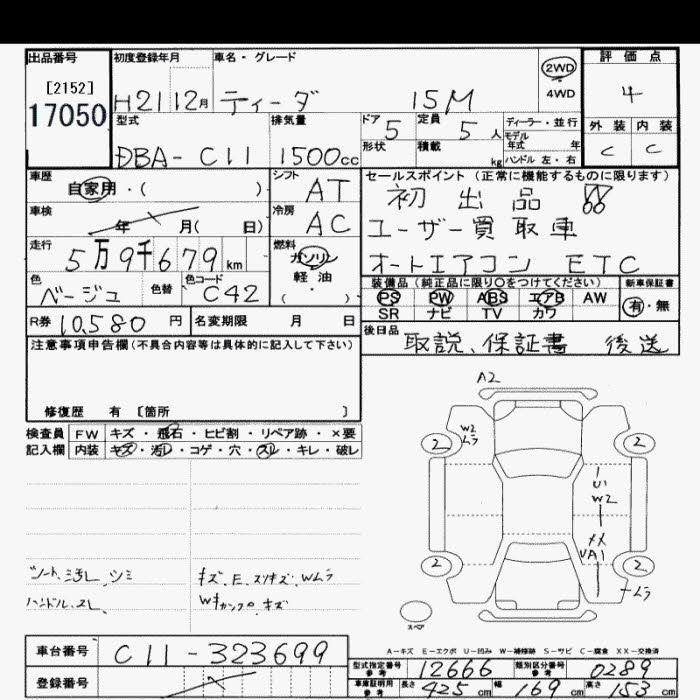 出品番号 初度登録年月 車名・グレード 2WD 評価点
[2152]
17050 H21 12月 ティーダ 15M 4WD 4
型式 排気量 ドア 5 定員 5 人 ディーラー・並行 外装 内装
DBA-C11 1500cc 形状 積載 kg モデル年式 年 ハンドル 左・右 C C
車歴 自家用・( ) シフト AT セールスポイント (正常に機能するものに限ります)
初出品
車検 年 月( 日) 冷房 AC ユーザー買取車
走行 5万9千679km 燃料 ガソリン オートエアコン ETC
軽・油
( )
色 ベージュ 色替 色コード C42 装備品 (純正品に限り○をつけてください) 新車保証書
PS PW ABS エアB AW 有・無
R券 10,580 円 名変期限 月 日 SR ナビ TV カワ
注意事項申告欄(不具合内容等は具体的に記入して下さい) 後日品 取説、保証書 後送
修復歴 有 [箇所 ]
A2
検査員 FW キズ・飛石・ヒビ割・リペア跡・×要
記入欄 内装 キズ・汚レ・コゲ・穴・スレ・キレ・破レ
2 W2 ムラ 2
U
W2
XX
UA1
2 2 ムラ
シート、汚レ、シミ キズ、E、スリキズ、Wムラ
ハンドル、スレ
スペア
A-キズ E-エクボ U-凹み W-補修跡 S-サビ C-腐食 XX-交換済
車台番号 C11-323699 型式指定番号 参考 12666 類別区分番号 参考 0289
登録番号 車庫証明用 参考 長さ 425 cm 幅 169 cm 高さ 153 cm